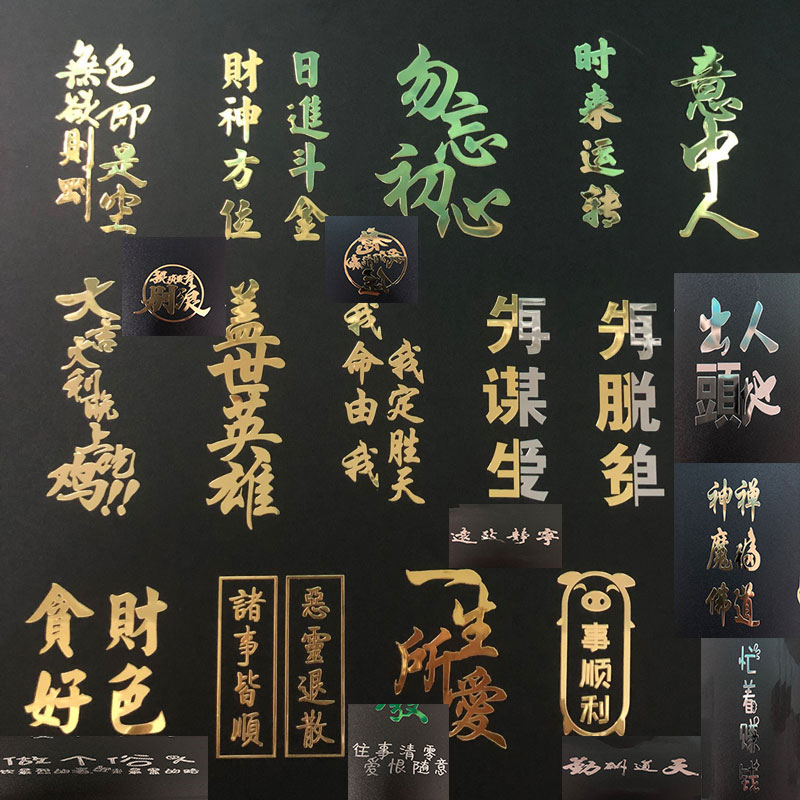 色即是空
無欲則剛
財神方位
日進斗金
勿忘
初心
时来运转
意中人
大吉大利晚上吃鸡!!
盖世英雄
我命由我
我定胜天
出人
頭地
寧靜致遠
神魔佛
禅
道
貪財
好色
諸事皆順
惡靈退散
一生
所愛
事顺利
忙着赚钱
做个俗人
往事清零
爱恨随意
天道酬勤